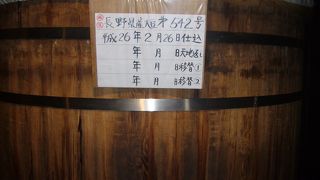 長野県産大豆 第542号
平成26年2月26日仕込
年 月 日天地返し
年 月 日移替1
年 月 日移替2